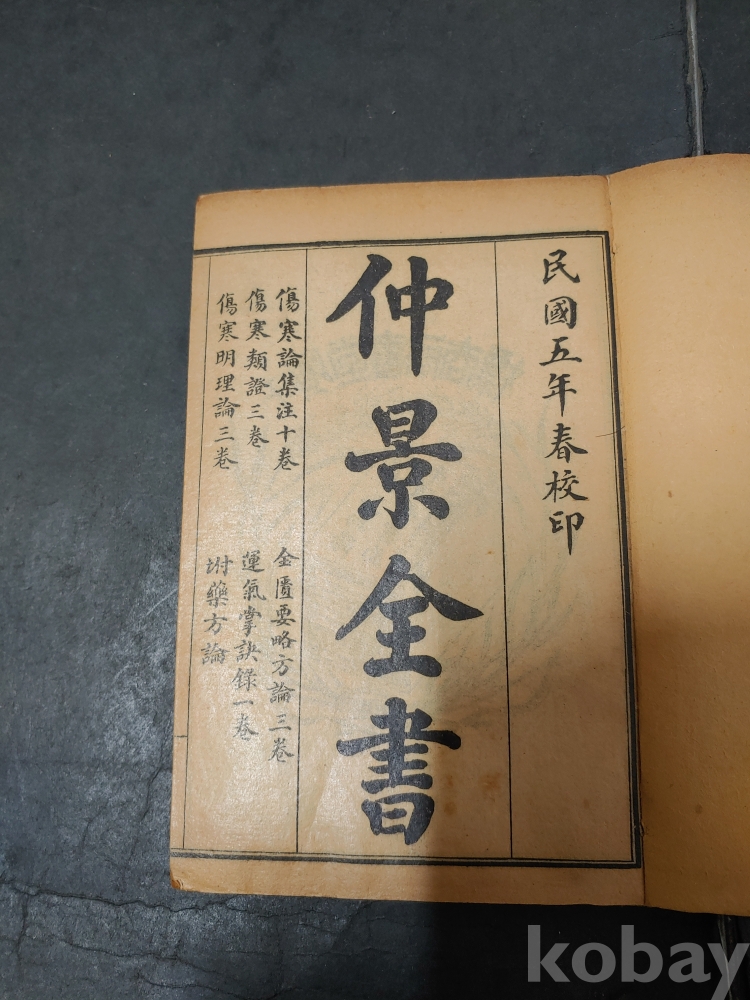 民國五年春校印
仲景全書
傷寒論集注十卷
金匱要略方論三卷
傷寒類證三卷
運氣掌訣錄一卷
傷寒明理論三卷
坿藥方論
kobay